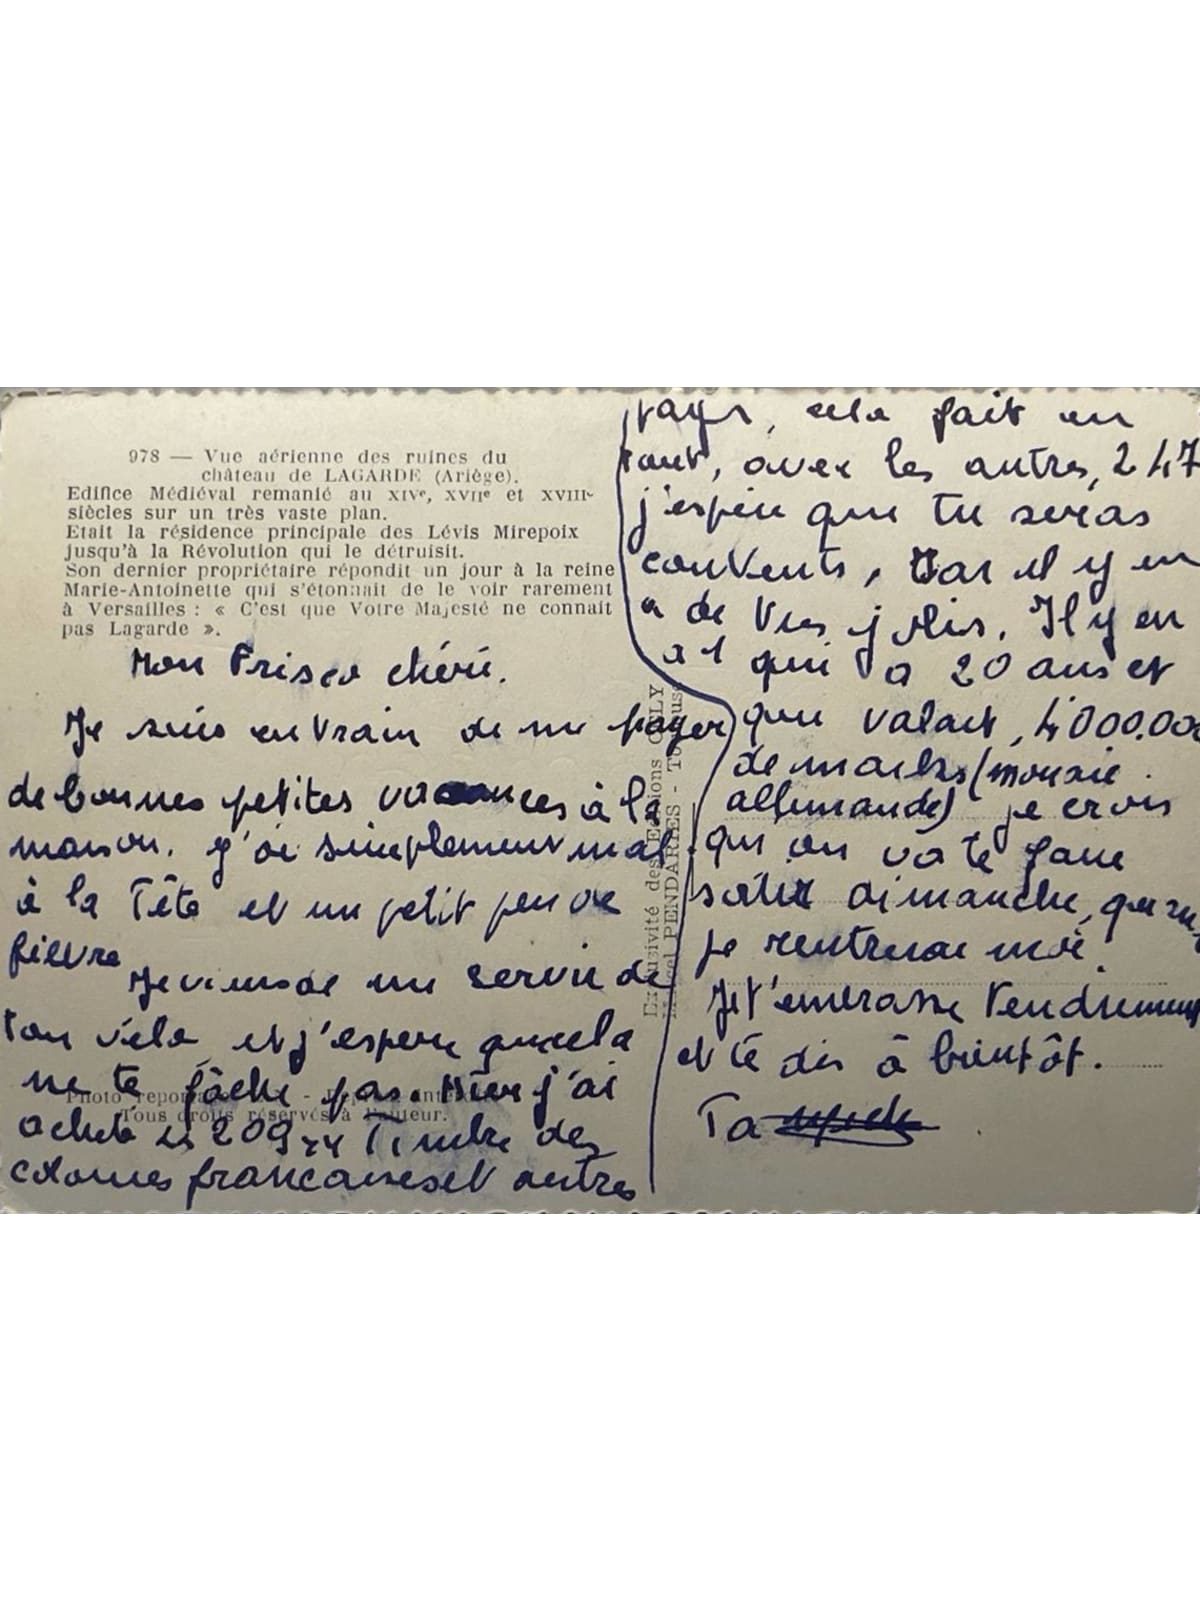 978 — Vue aérienne des ruines du
château de LAGARDE (Ariège).
Edifice Médiéval remanié au XIVe, XVIIe et XVIIIe
siècles sur un très vaste plan.
Etait la résidence principale des Lévis Mirepoix
jusqu'à la Révolution qui le détruisit.
Son dernier propriétaire répondit un jour à la reine
Marie-Antoinette qui s'étonnait de le voir rarement
à Versailles : « C'est que Votre Majesté ne connait
pas Lagarde ».
Mon Frisco chéri.
Je suis en train de me payer
de bonnes petites vacances à la
maison. j'ai simplement mal
à la Tête et un petit peu de
fièvre
Je viens de me servir de
ton vélo et j'espère que cela
ne te fâche pas. Hier j'ai
acheté 209 Timbre des
colonies francaises et autres
Photo
Tous droits réservés à l'auteur.
Exclusivité des Editions
Marcel PENDARIES - Toulouse
pays, cela fait en
tout, avec les autres, 247
j'espère que tu seras
contents, Car il y en
a de Très jolis. Il y en
a 1 qui a 20 ans et
que valait, 4000.000
de marks (monaie
allemande) je crois
qu'on va te faire
sortir dimanche, quand
je rentrerai moi.
Je t'embrasse Tendrement
et te dis à bientôt.
Ta